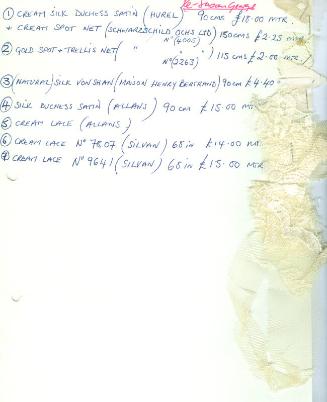 ① CREAM SILK DUCHESS SATIN (HUREL) 90 CMS £18.00 MTR.
+ CREAM SPOT NET (SCHWARZSCHILD OCHS LTD) 180 CMS £2.25 MTR
Nº (4005)
② GOLD SPOT + TRELLIS NET ( " " ) 115 CMS £2.00 MTR.
Nº (2263)
③ (NATURAL) SILK (MAISON HENRY BERTRAND) 90 CM £4.40
④ SILK DUCHESS SATIN (ALLANS) 90 CM £15.00 MTR
⑤ CREAM LACE (ALLANS)
⑥ CREAM LACE Nº 7807 (SILVAN) 68 in £14.00 MTR
⑦ CREAM LACE Nº 9641 (SILVAN) 68 in £15.00 MTR